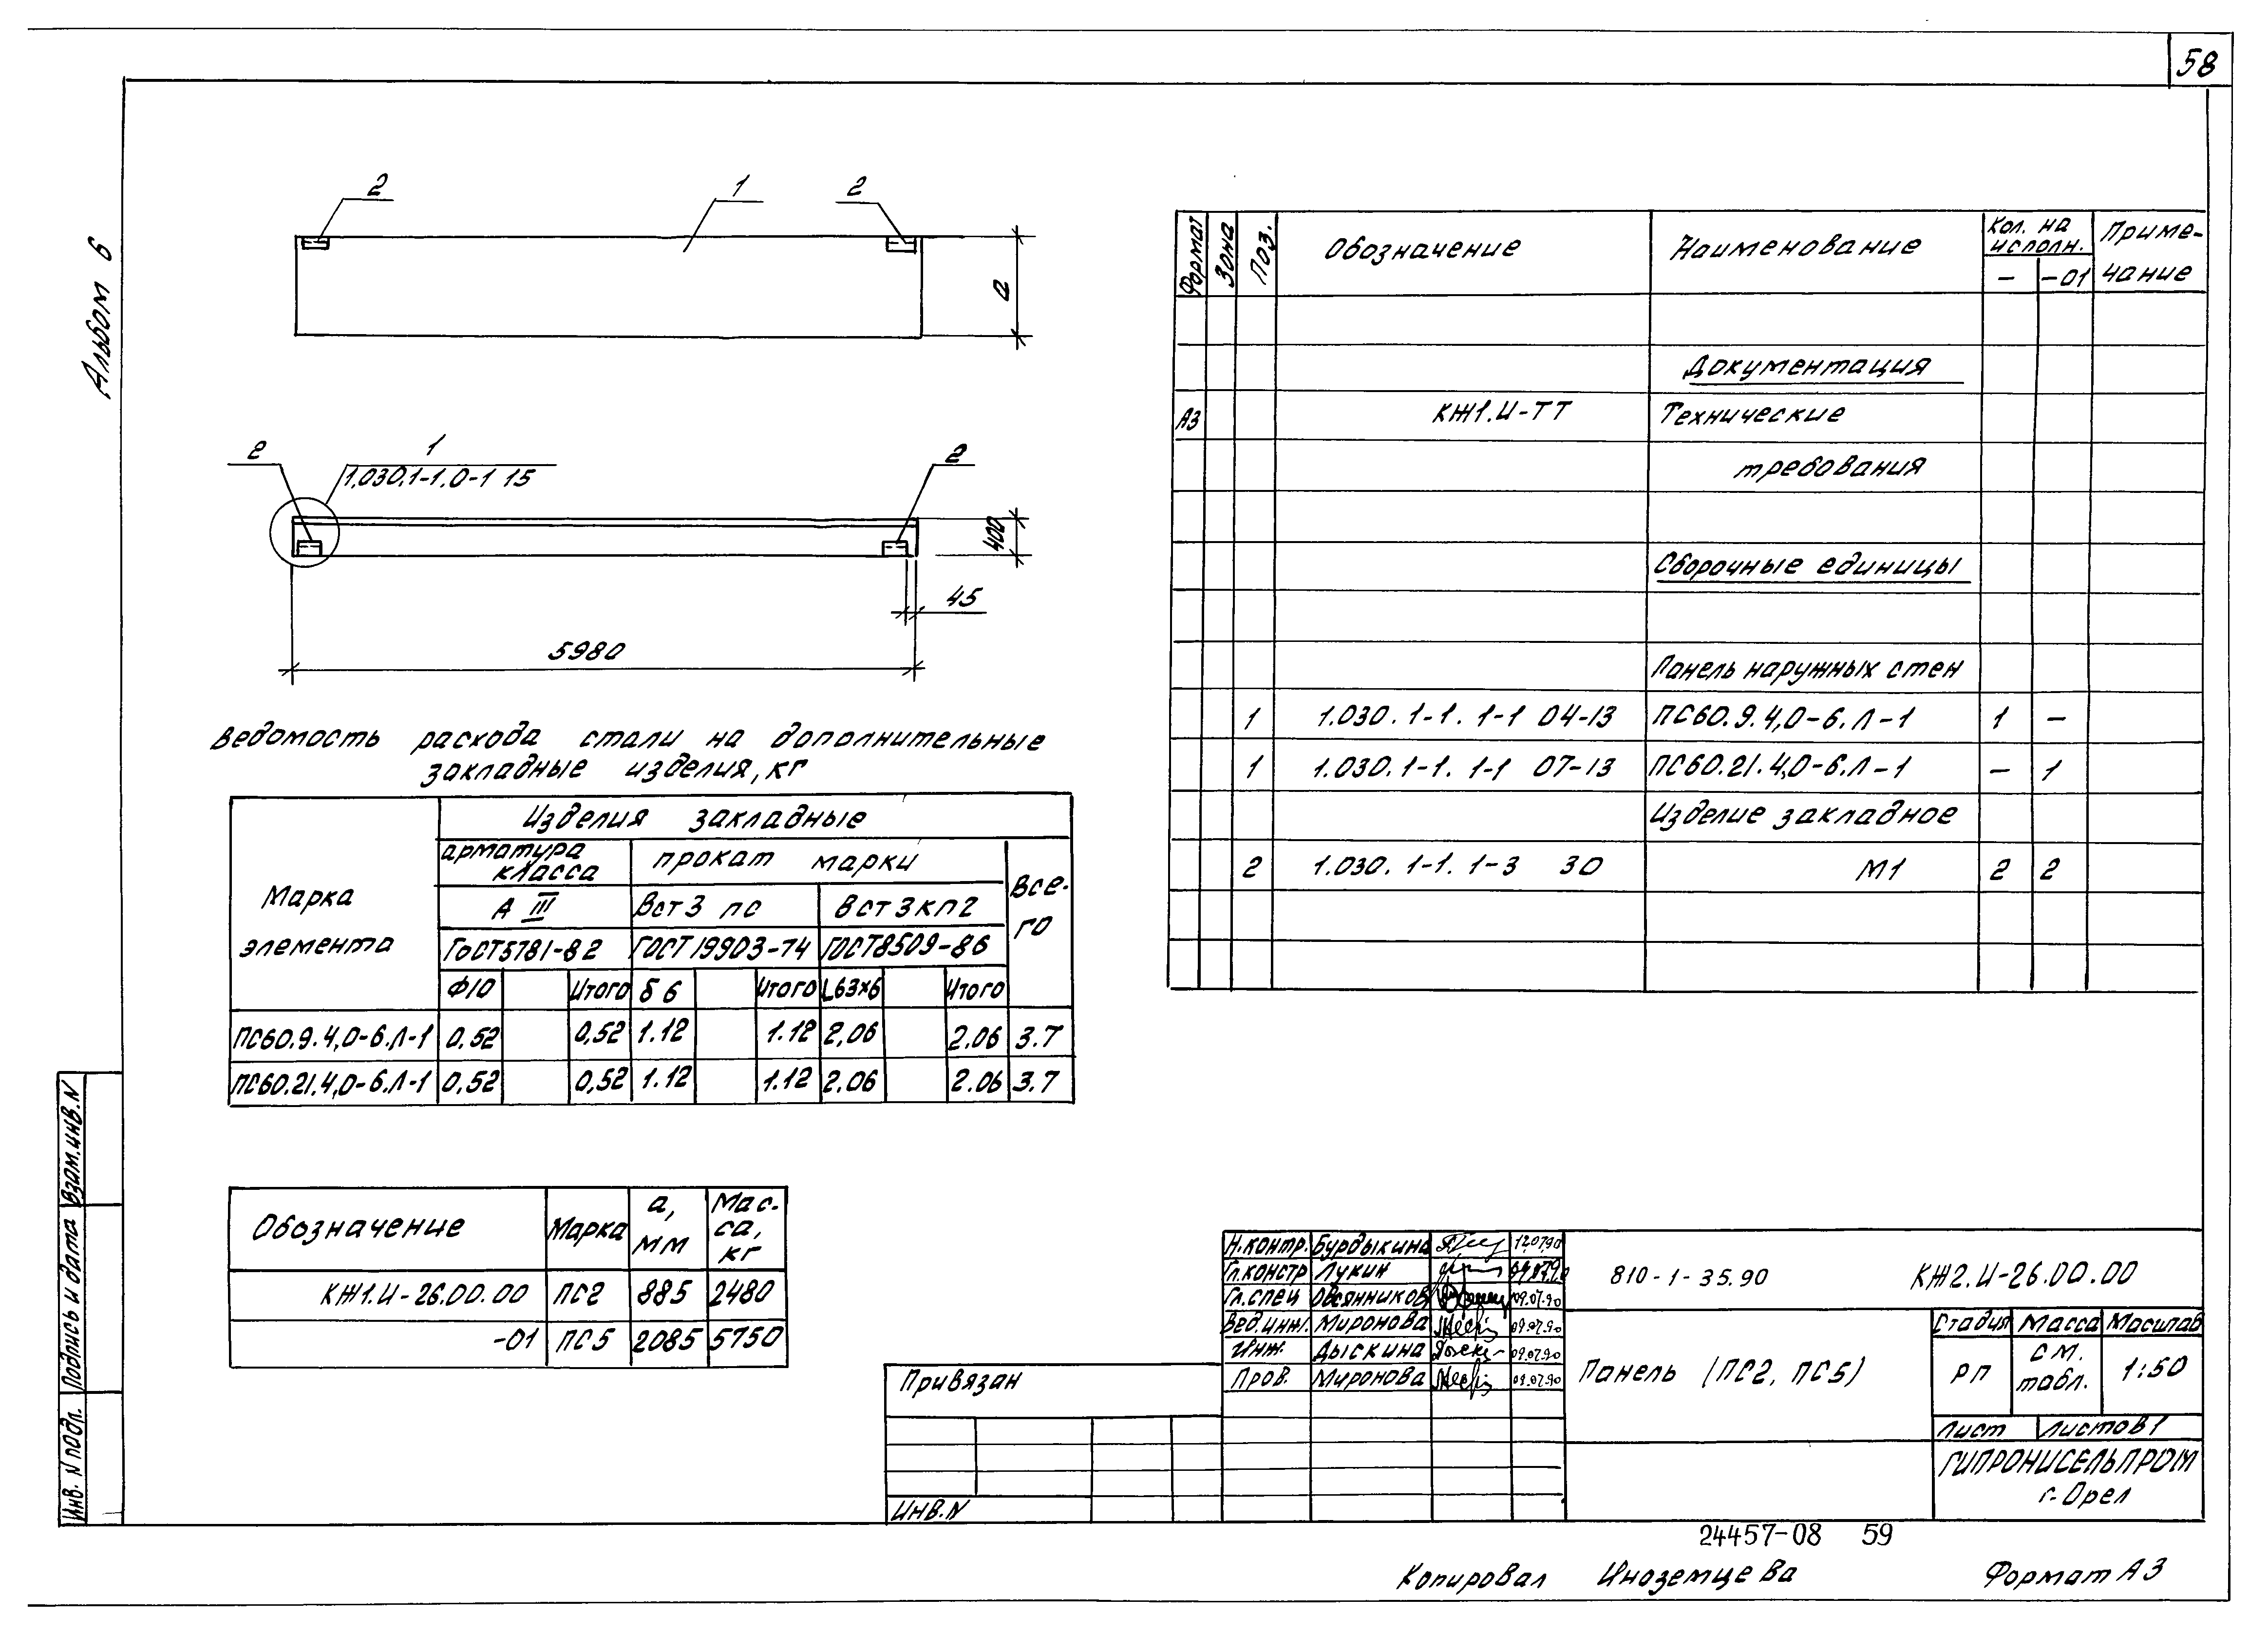 58
Альбом 6
2 1 2
а
2 1 2
1.030.1-1.0-1 15
400
45
5980
Ведомость расхода стали на дополнительные
закладные изделия, кг
Марка элемента
Изделия закладные
арматура класса
прокат марки
Всего
А III
Вст3 пс
Вст3кп2
ГОСТ5781-82 ГОСТ19903-74 ГОСТ8509-86
Ф10 Итого δ6 Итого L63х6 Итого
ПС60.9.4,0-6.Л-1 0,52 0,52 1.12 1.12 2,06 2.06 3.7
ПС60.21.4,0-6.Л-1 0,52 0,52 1.12 1.12 2.06 2.06 3.7
Обозначение Марка а, мм Мас-са, кг
КЖ1.И-26.00.00 ПС2 885 2480
-01 ПС5 2085 5750
Формат Зона Поз. Обозначение Наименование Кол. на исполн. Приме-чание
- -01
Документация
А3 КЖ1.И-ТТ Технические
требования
Сборочные единицы
Панель наружных стен
1 1.030.1-1.1-1 04-13 ПС60.9.4,0-6.Л-1 1 -
1 1.030.1-1.1-1 07-13 ПС60.21.4,0-6.Л-1 - 1
Изделие закладное
2 1.030.1-1.1-3 30 М1 2 2
Н.контр. Бурдыкина 12.07.90
Гл.констр Лукин 09.07.90
Гл.спец Овсянников 09.07.90
Вед.инж. Миронова 09.07.90
Инж. Дыскина 09.07.90
Пров. Миронова 09.07.90
810-1-35.90 КЖ2.И-26.00.00
Панель (ПС2, ПС5)
Стадия Масса Масштаб
РП см. табл. 1:50
Лист Листов 1
ГИПРОНИСЕЛЬПРОМ
г. Орел
Привязан
Инв.N
Инв. N подл. Подпись и дата Взам.инв.N
24457-08 59
Копировал Иноземцева Формат А3